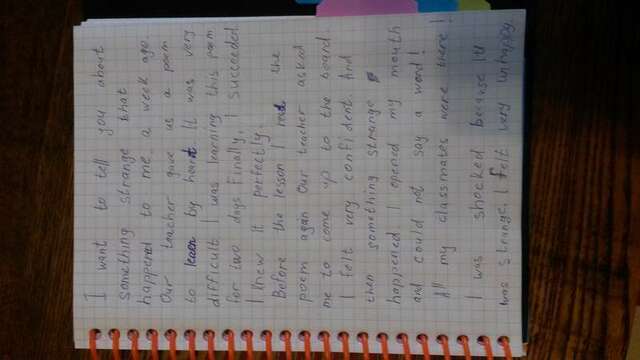 I want to tell you about
something strange that
happened to me a week ago.
Our teacher gave us a poem
to learn by heart. It was very
difficult I was learning this poem
for two days. Finally, I succeeded
I knew it perfectly.
Before the lesson I read the
poem again Our teacher asked
me to come up to the board.
I felt very confident. And
then something strange
happened I opened my mouth
and could not say a word!
All my classmates were there!
I was shocked because it
was strange. I felt very unhappy.